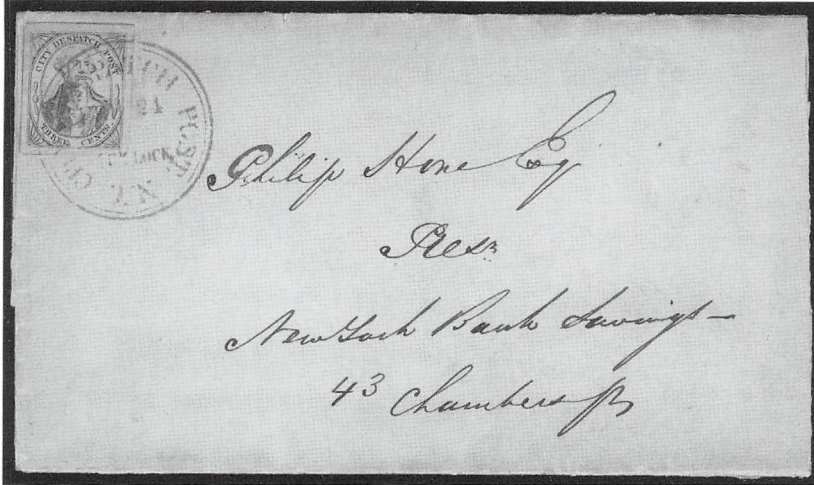 CITY DESPATCH POST
THREE CENTS
PATCH POST N.Y. CI
24
LOCK
Philip Hone Esq
Pres.
New York Bank Savings—
43 Chambers St